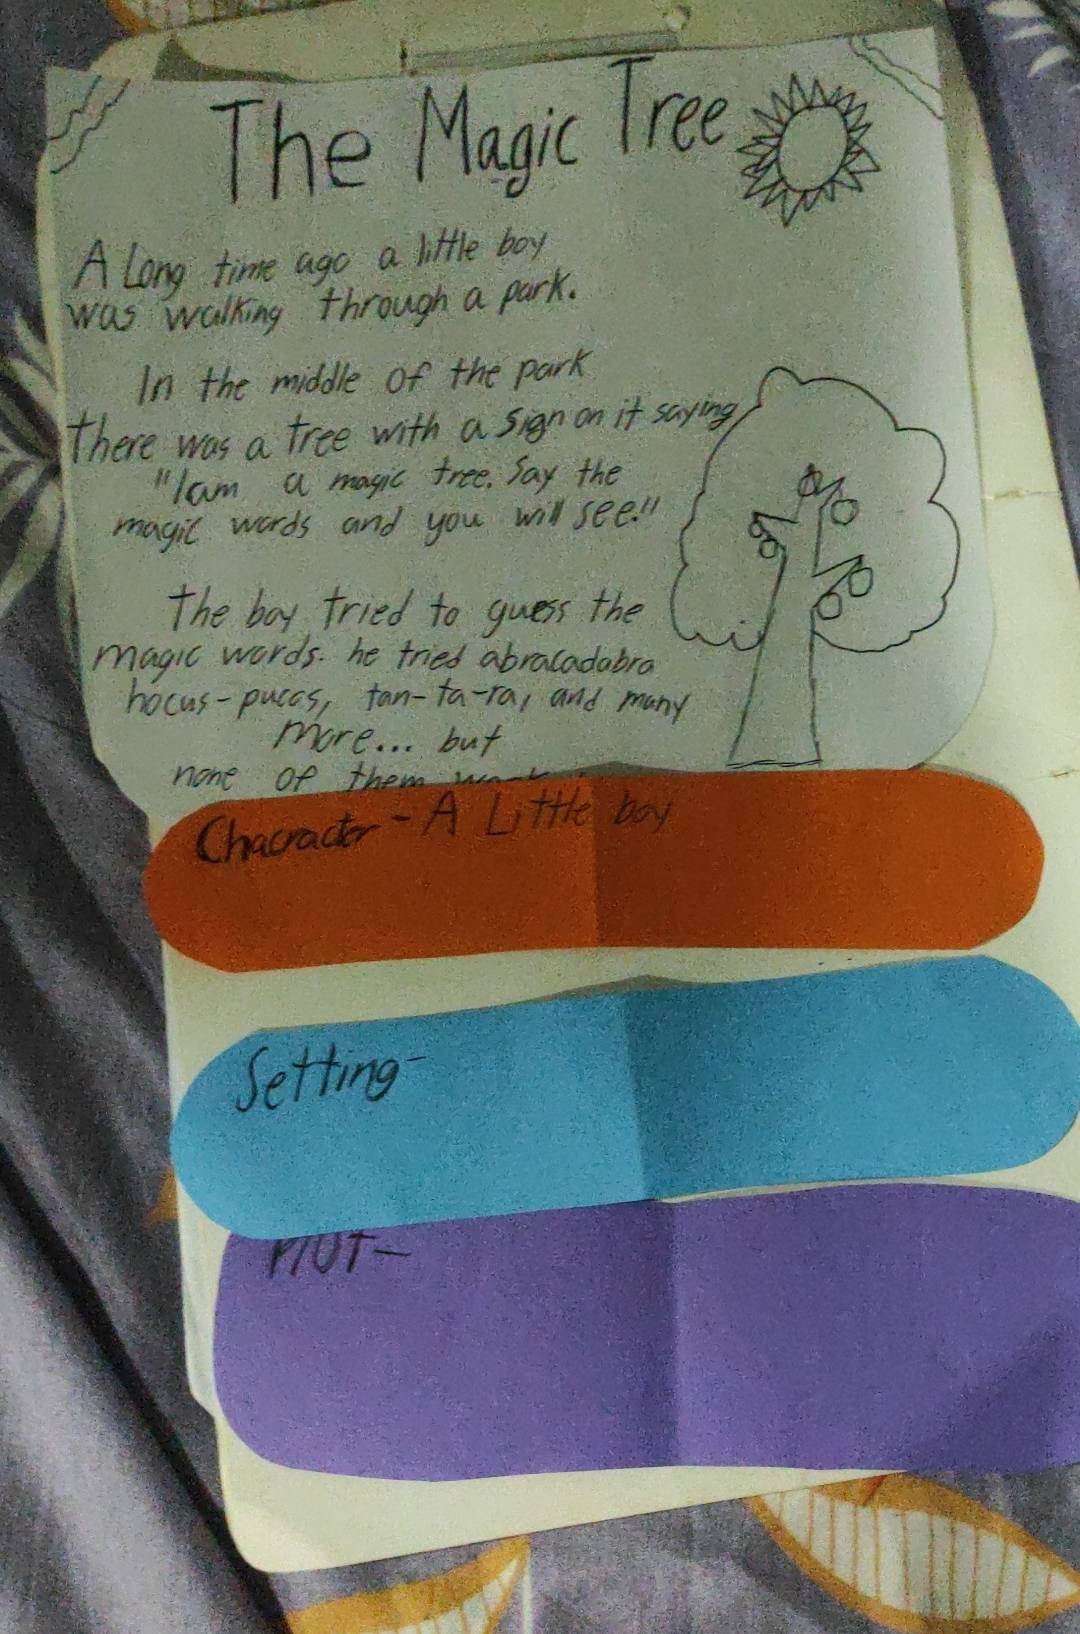 The Magic Tree
A Long time ago a little boy
was walking through a park.
In the middle of the park
there was a tree with a sign on it saying
"I am a magic tree. Say the
magic words and you will see!"
The boy tried to guess the
magic words. he tried abracadabra
hocus-pucos, tan-ta-ra, and many
more... but
none of them
Chacracter - A Little boy
Setting-
Plot-